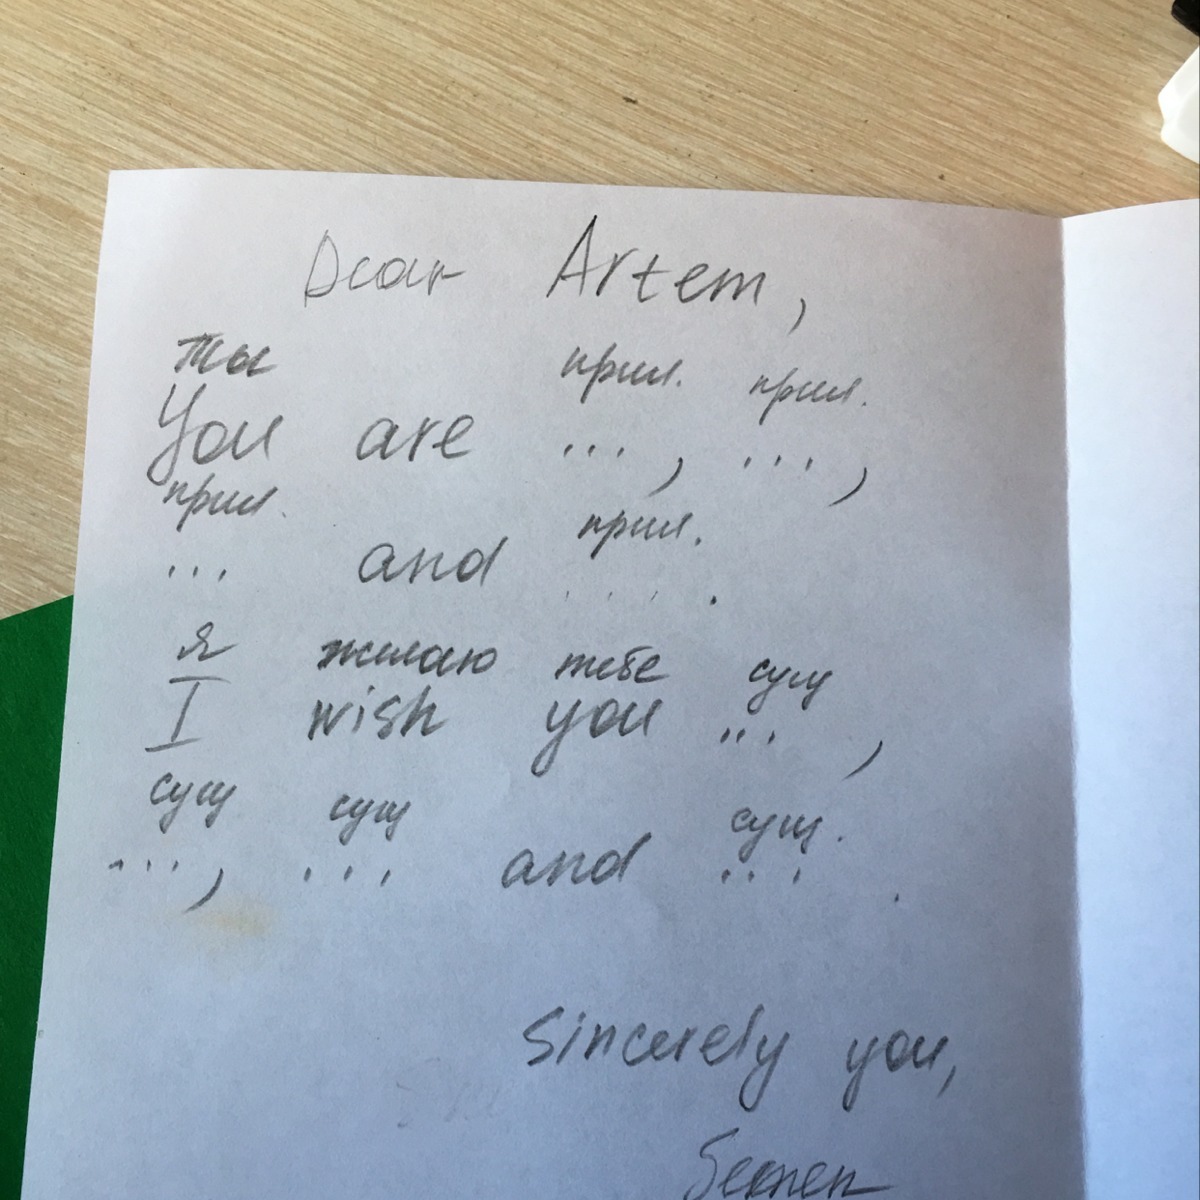 Dear Artem,
ты прил. прил.
You are ... , ... ,
прил. прил.
... and ... .
Я желаю тебе сущ
I wish you ... ,
сущ сущ сущ.
... , ... and ... .
Sincerely you,
Semen